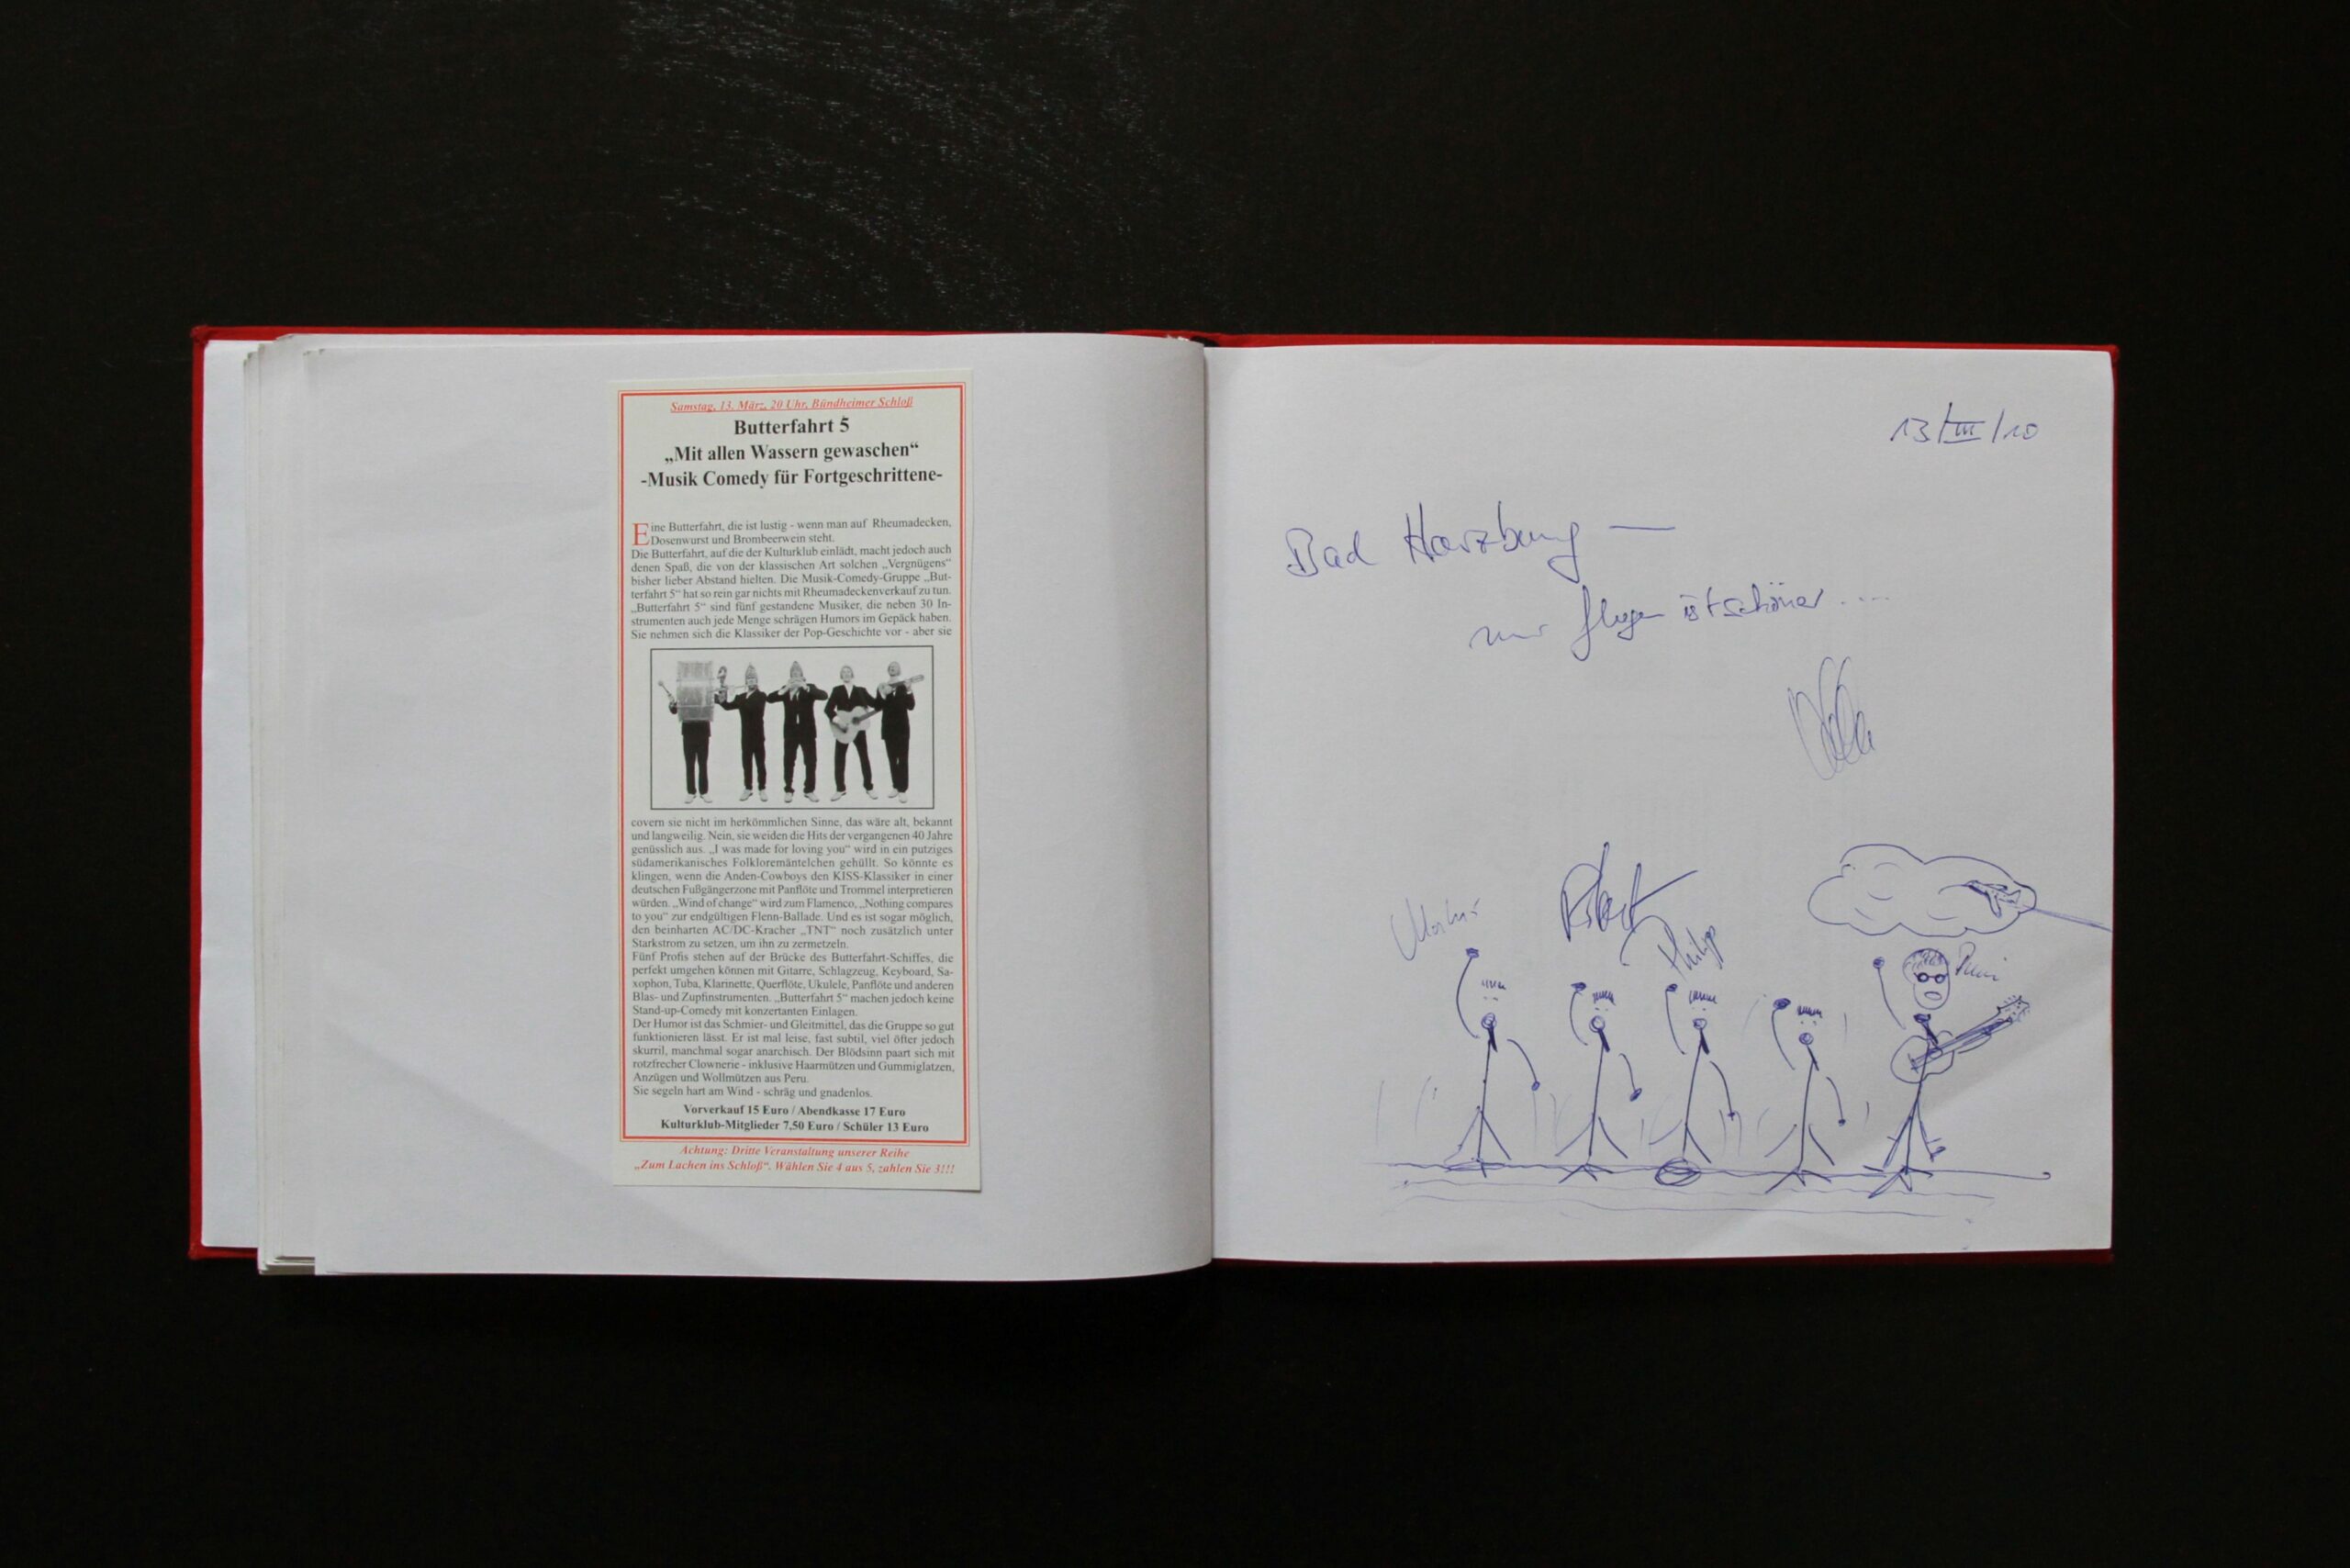 Samstag, 13. März, 20 Uhr, Bündheimer Schloß
Butterfahrt 5
„Mit allen Wassern gewaschen“
-Musik Comedy für Fortgeschrittene-
Eine Butterfahrt, die ist lustig - wenn man auf Rheumadecken,
Dosenwurst und Brombeerwein steht.
Die Butterfahrt, auf die der Kulturklub einlädt, macht jedoch auch
denen Spaß, die von der klassischen Art solchen „Vergnügens“
bisher lieber Abstand hielten. Die Musik-Comedy-Gruppe „But-
terfahrt 5“ hat so rein gar nichts mit Rheumadeckenverkauf zu tun.
„Butterfahrt 5“ sind fünf gestandene Musiker, die neben 30 In-
strumenten auch jede Menge schrägen Humors im Gepäck haben.
Sie nehmen sich die Klassiker der Pop-Geschichte vor - aber sie
covern sie nicht im herkömmlichen Sinne, das wäre alt, bekannt
und langweilig. Nein, sie weiden die Hits der vergangenen 40 Jahre
genüsslich aus. „I was made for loving you“ wird in ein putziges
südamerikanisches Folkloremäntelchen gehüllt. So könnte es
klingen, wenn die Anden-Cowboys den KISS-Klassiker in einer
deutschen Fußgängerzone mit Panflöte und Trommel interpretieren
würden. „Wind of change“ wird zum Flamenco, „Nothing compares
to you“ zur endgültigen Flenn-Ballade. Und es ist sogar möglich,
den beinharten AC/DC-Kracher „TNT“ noch zusätzlich unter
Starkstrom zu setzen, um ihn zu zermetzeln.
Fünf Profis stehen auf der Brücke des Butterfahrt-Schiffes, die
perfekt umgehen können mit Gitarre, Schlagzeug, Keyboard, Sa-
xophon, Tuba, Klarinette, Querflöte, Ukulele, Panflöte und anderen
Blas- und Zupfinstrumenten. „Butterfahrt 5“ machen jedoch keine
Stand-up-Comedy mit konzertanten Einlagen.
Der Humor ist das Schmier- und Gleitmittel, das die Gruppe so gut
funktionieren lässt. Er ist mal leise, fast subtil, viel öfter jedoch
skurril, manchmal sogar anarchisch. Der Blödsinn paart sich mit
rotzfrecher Clownerie - inklusive Haarmützen und Gummiglatzen,
Anzügen und Wollmützen aus Peru.
Sie segeln hart am Wind - schräg und gnadenlos.
Vorverkauf 15 Euro / Abendkasse 17 Euro
Kulturklub-Mitglieder 7,50 Euro / Schüler 13 Euro
Achtung: Dritte Veranstaltung unserer Reihe
„Zum Lachen ins Schloß“. Wählen Sie 4 aus 5, zahlen Sie 3!!!
13/III/10
Bad Harzburg —
nur fliegen ist schöner ....
Philipp